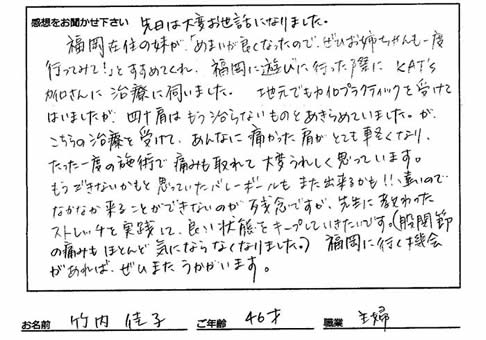 感想をお聞かせ下さい 先日は大変お世話になりました。
福岡在住の妹が、「めまいが良くなったので、ぜひお姉ちゃんも一度
行ってみて!」とすすめてくれ、福岡に遊びに行った際に KAT'S
カイロさんに治療に伺いました。 地元でもカイロプラクティックを受けて
はいましたが、四十肩はもう治らないものとあきらめていました。が、
こちらの治療を受けて、あんなに痛かった肩がとても軽くなり、
たった一度の施術で痛みも取れて大変うれしく思っています。
もうできないかもと思っていたバレーボールもまた出来るかも!!、遠いので
なかなか来ることができないのが残念ですが、先生に教わった
ストレッチを実践して、良い状態をキープしていきたいです。(股関節
の痛みもほとんど気にならなくなりました。) 福岡に行く機会
があれば、ぜひまたうかがいます。
お名前 竹内 佳子 ご年齢 46才 職業 主婦